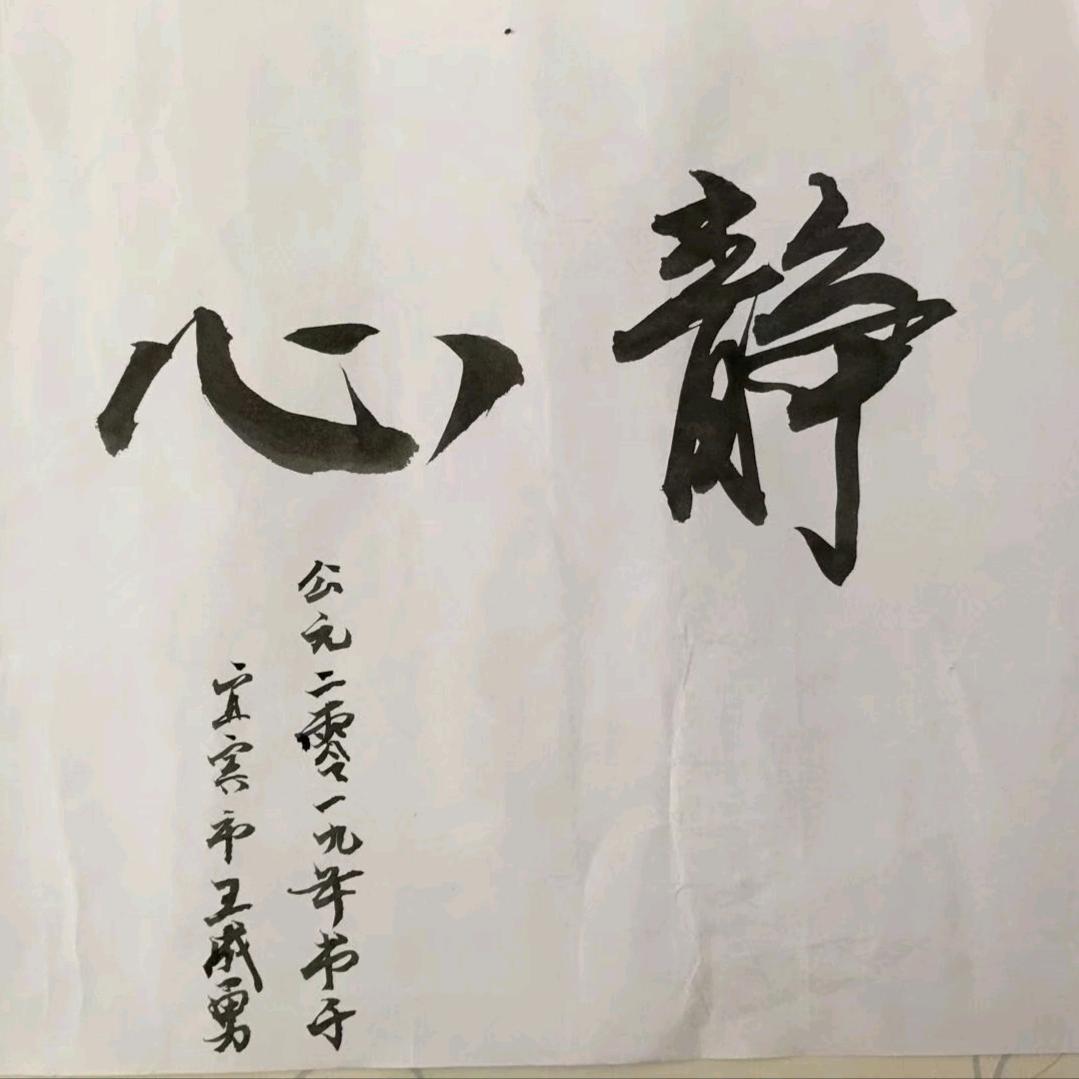 静心
公元二零一九年书于
宜宾市王成勇